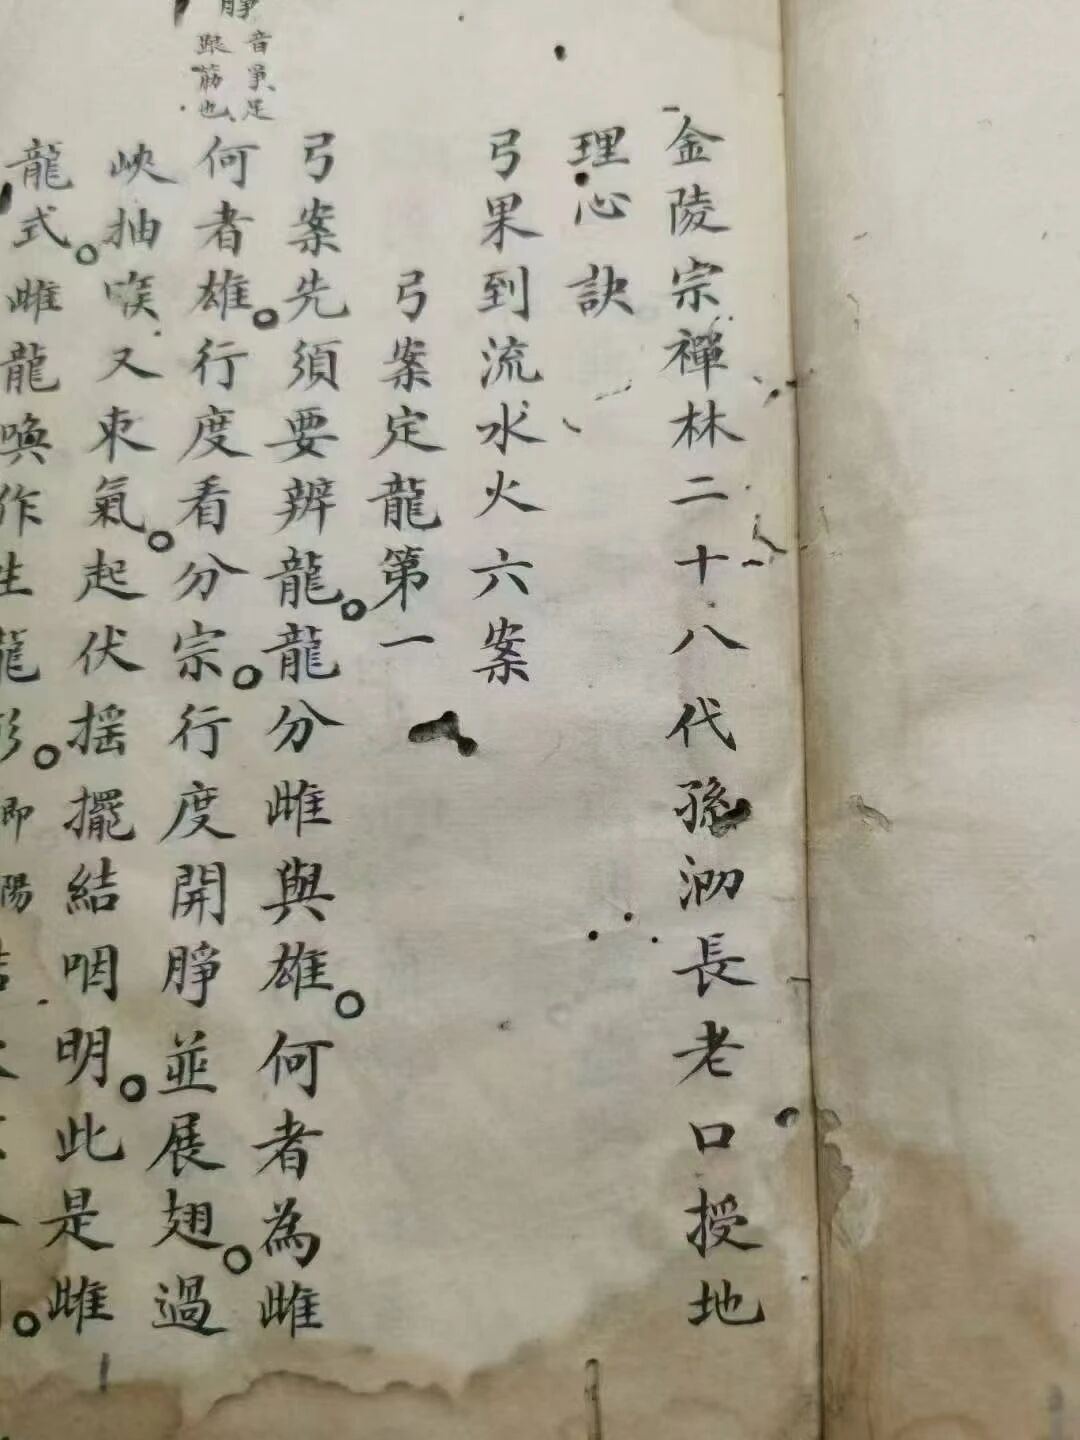 金陵宗禪林二十八代孫泐長老口授地
理心訣
弓果到流水火六案
弓案定龍第一
弓案先須要辨龍。龍分雌與雄。何者為雌
睜
音爭足
跟筋也
何者雄。行度看分宗。行度開睜並展翅。過
峽抽喉又束氣。起伏搖擺結咽明。此是雌
龍式。雌龍喚作生龍形。即陽